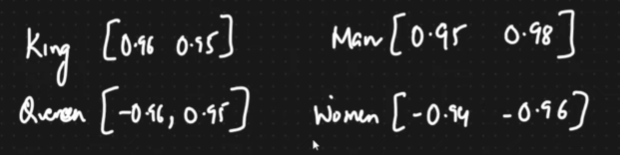 King [0.96 0.95]
Man [0.95 0.98]
Queen [-0.96, 0.95]
Women [-0.94 -0.96]